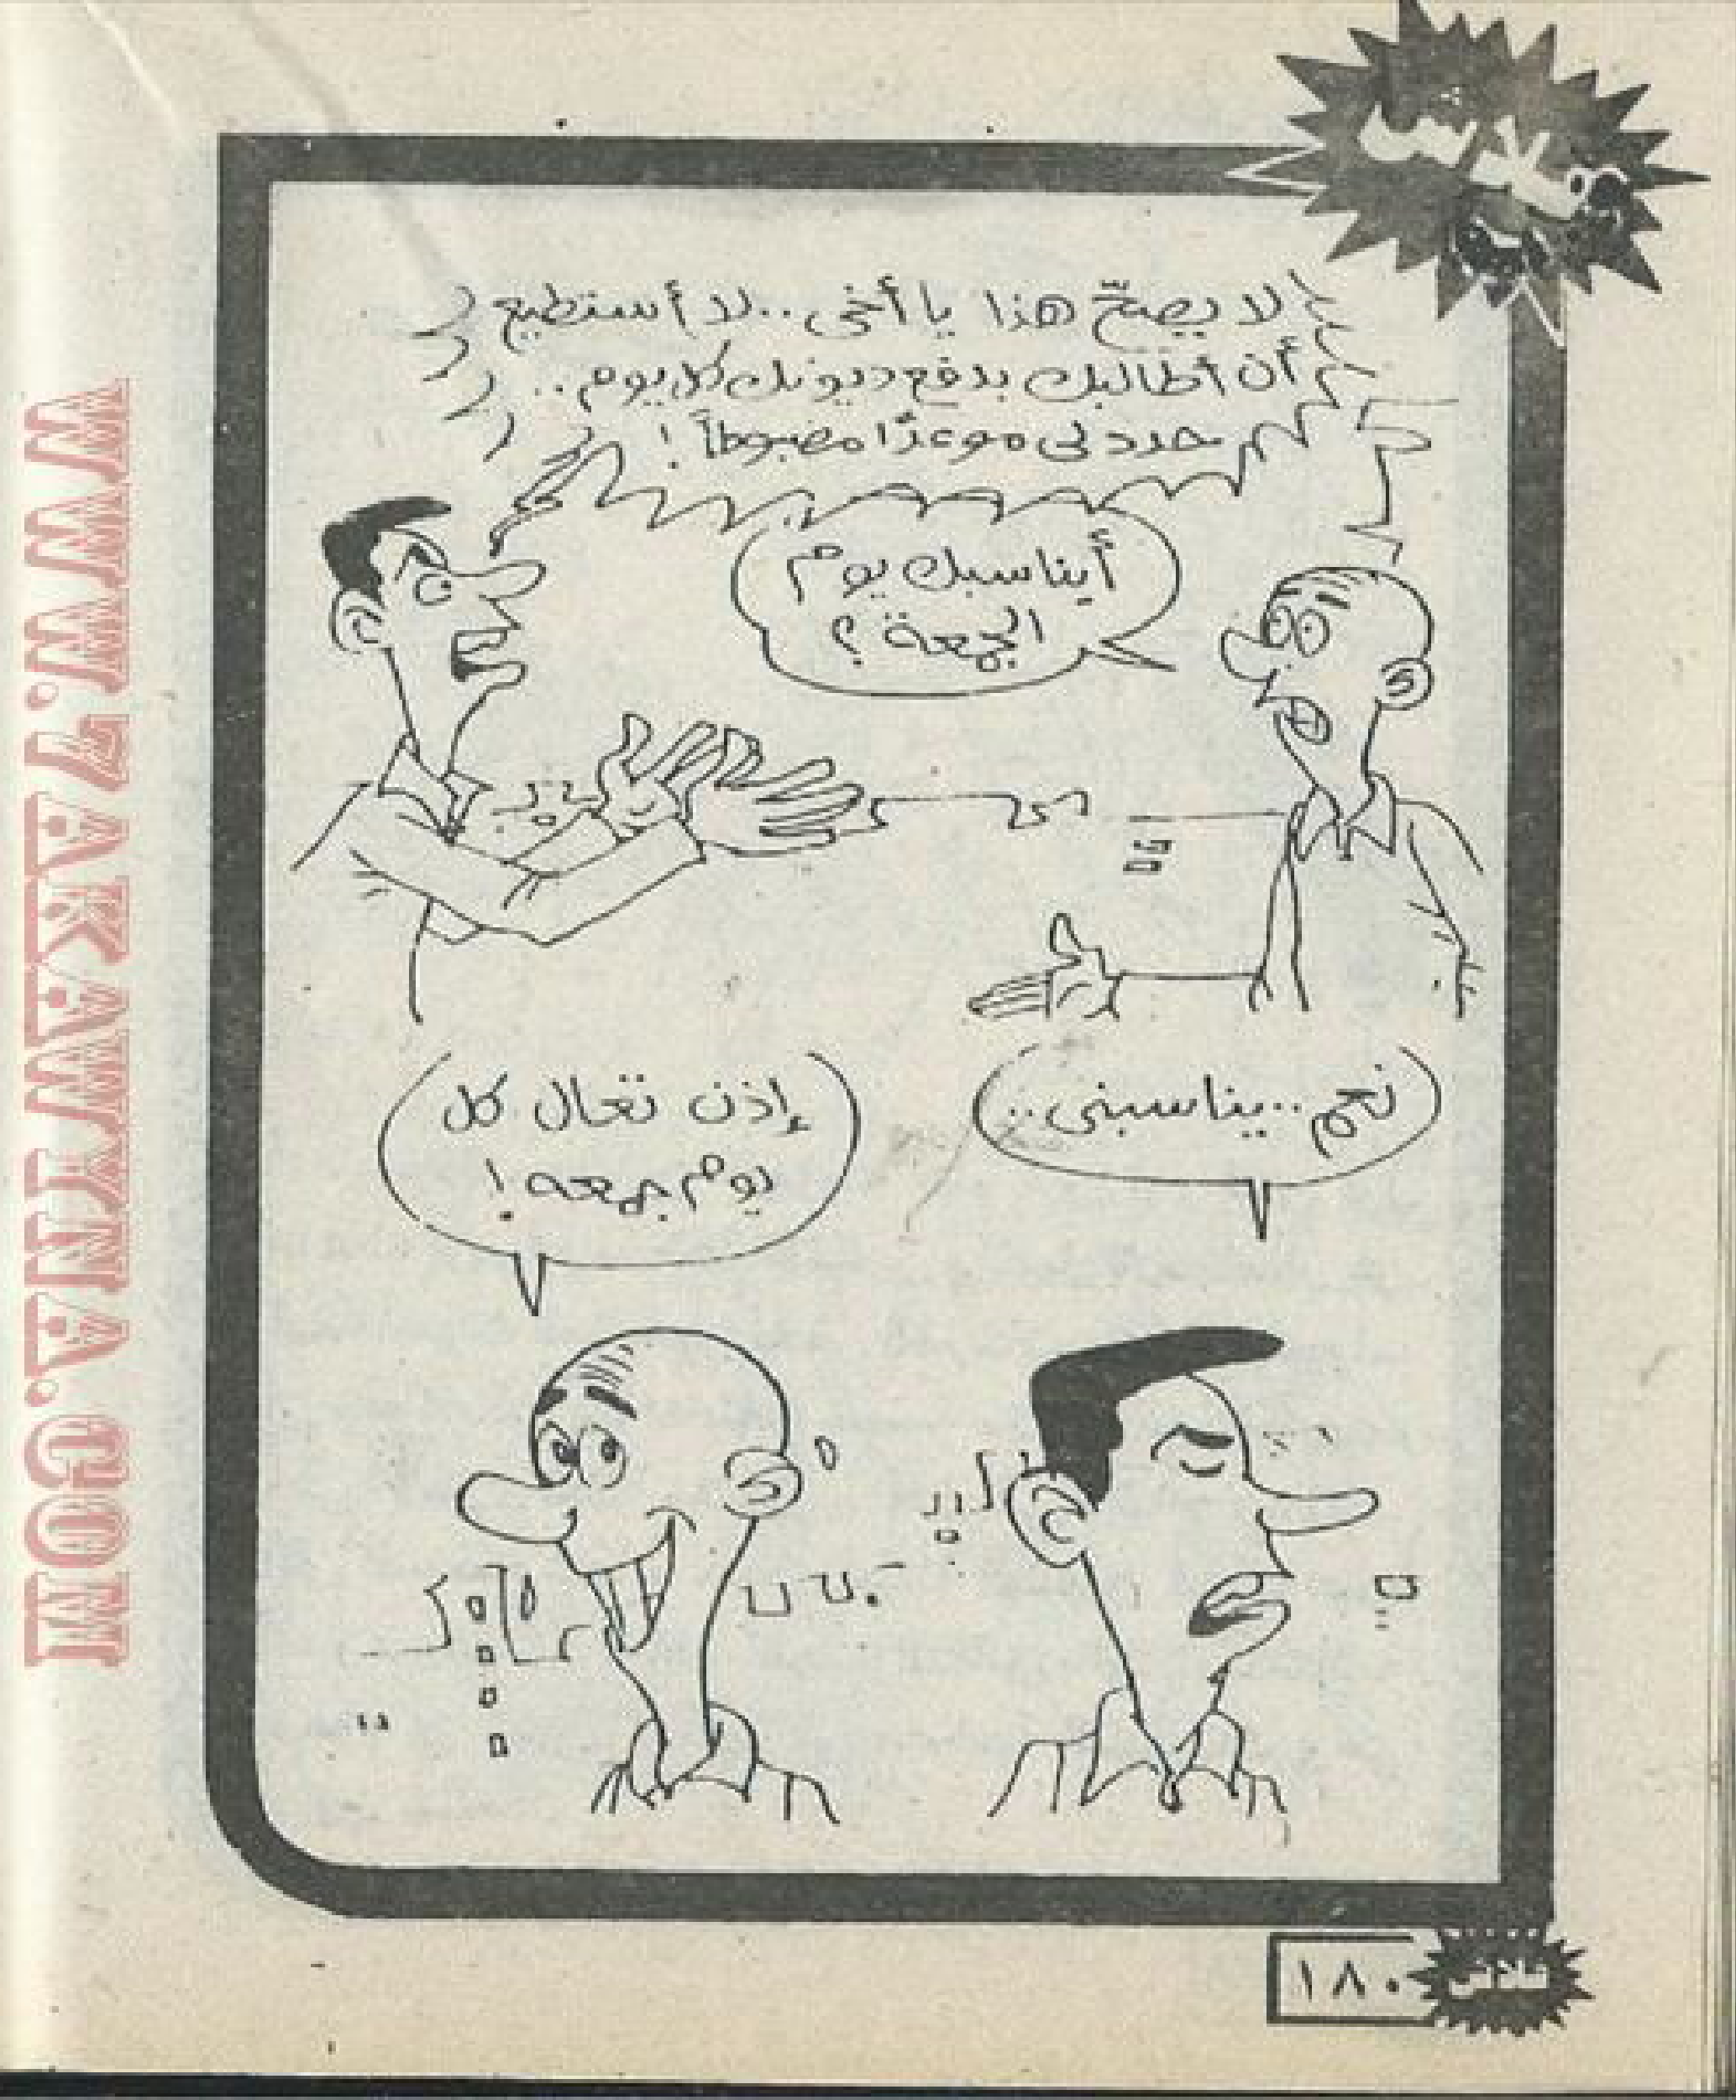 فلاش
لا يصحّ هذا يا أخى.. لا أستطيع
أن أطالبك بدفع ديونك كل يوم..
حدد لى موعدًا مضبوطاً!
أيناسبك يوم
الجمعة؟
نعم.. يناسبنى..
إذن تعال كل
يوم جمعه!
فلاش
١٨٠
WWW.7AKAWITNA.COM